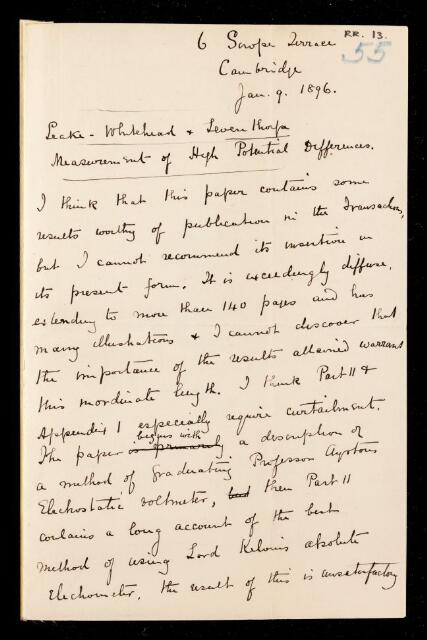 RR. 13.
55
6 Scroope Terrace
Cambridge
Jan. 9. 1896.
Leake - Whitehead & Leventhorpe
Measurement of High Potential Differences.
I think that this paper contains some
results worthy of publication in the Transactions,
but I cannot recommend its insertion in
its present form. It is exceedingly diffuse,
extending to more than 140 pages and has
many illustrations & I cannot discover that
the importance of the results attained warrant
this inordinate length. I think Part II &
Appendix 1 especially require curtailment.
The paper begins with is primarily a description of
a method of graduating Professor Ayrtons
Electrostatic voltmeter, but then Part II
contains a long account of the best
method of using Lord Kelvins absolute
Electrometer, the result of this is unsatisfactory